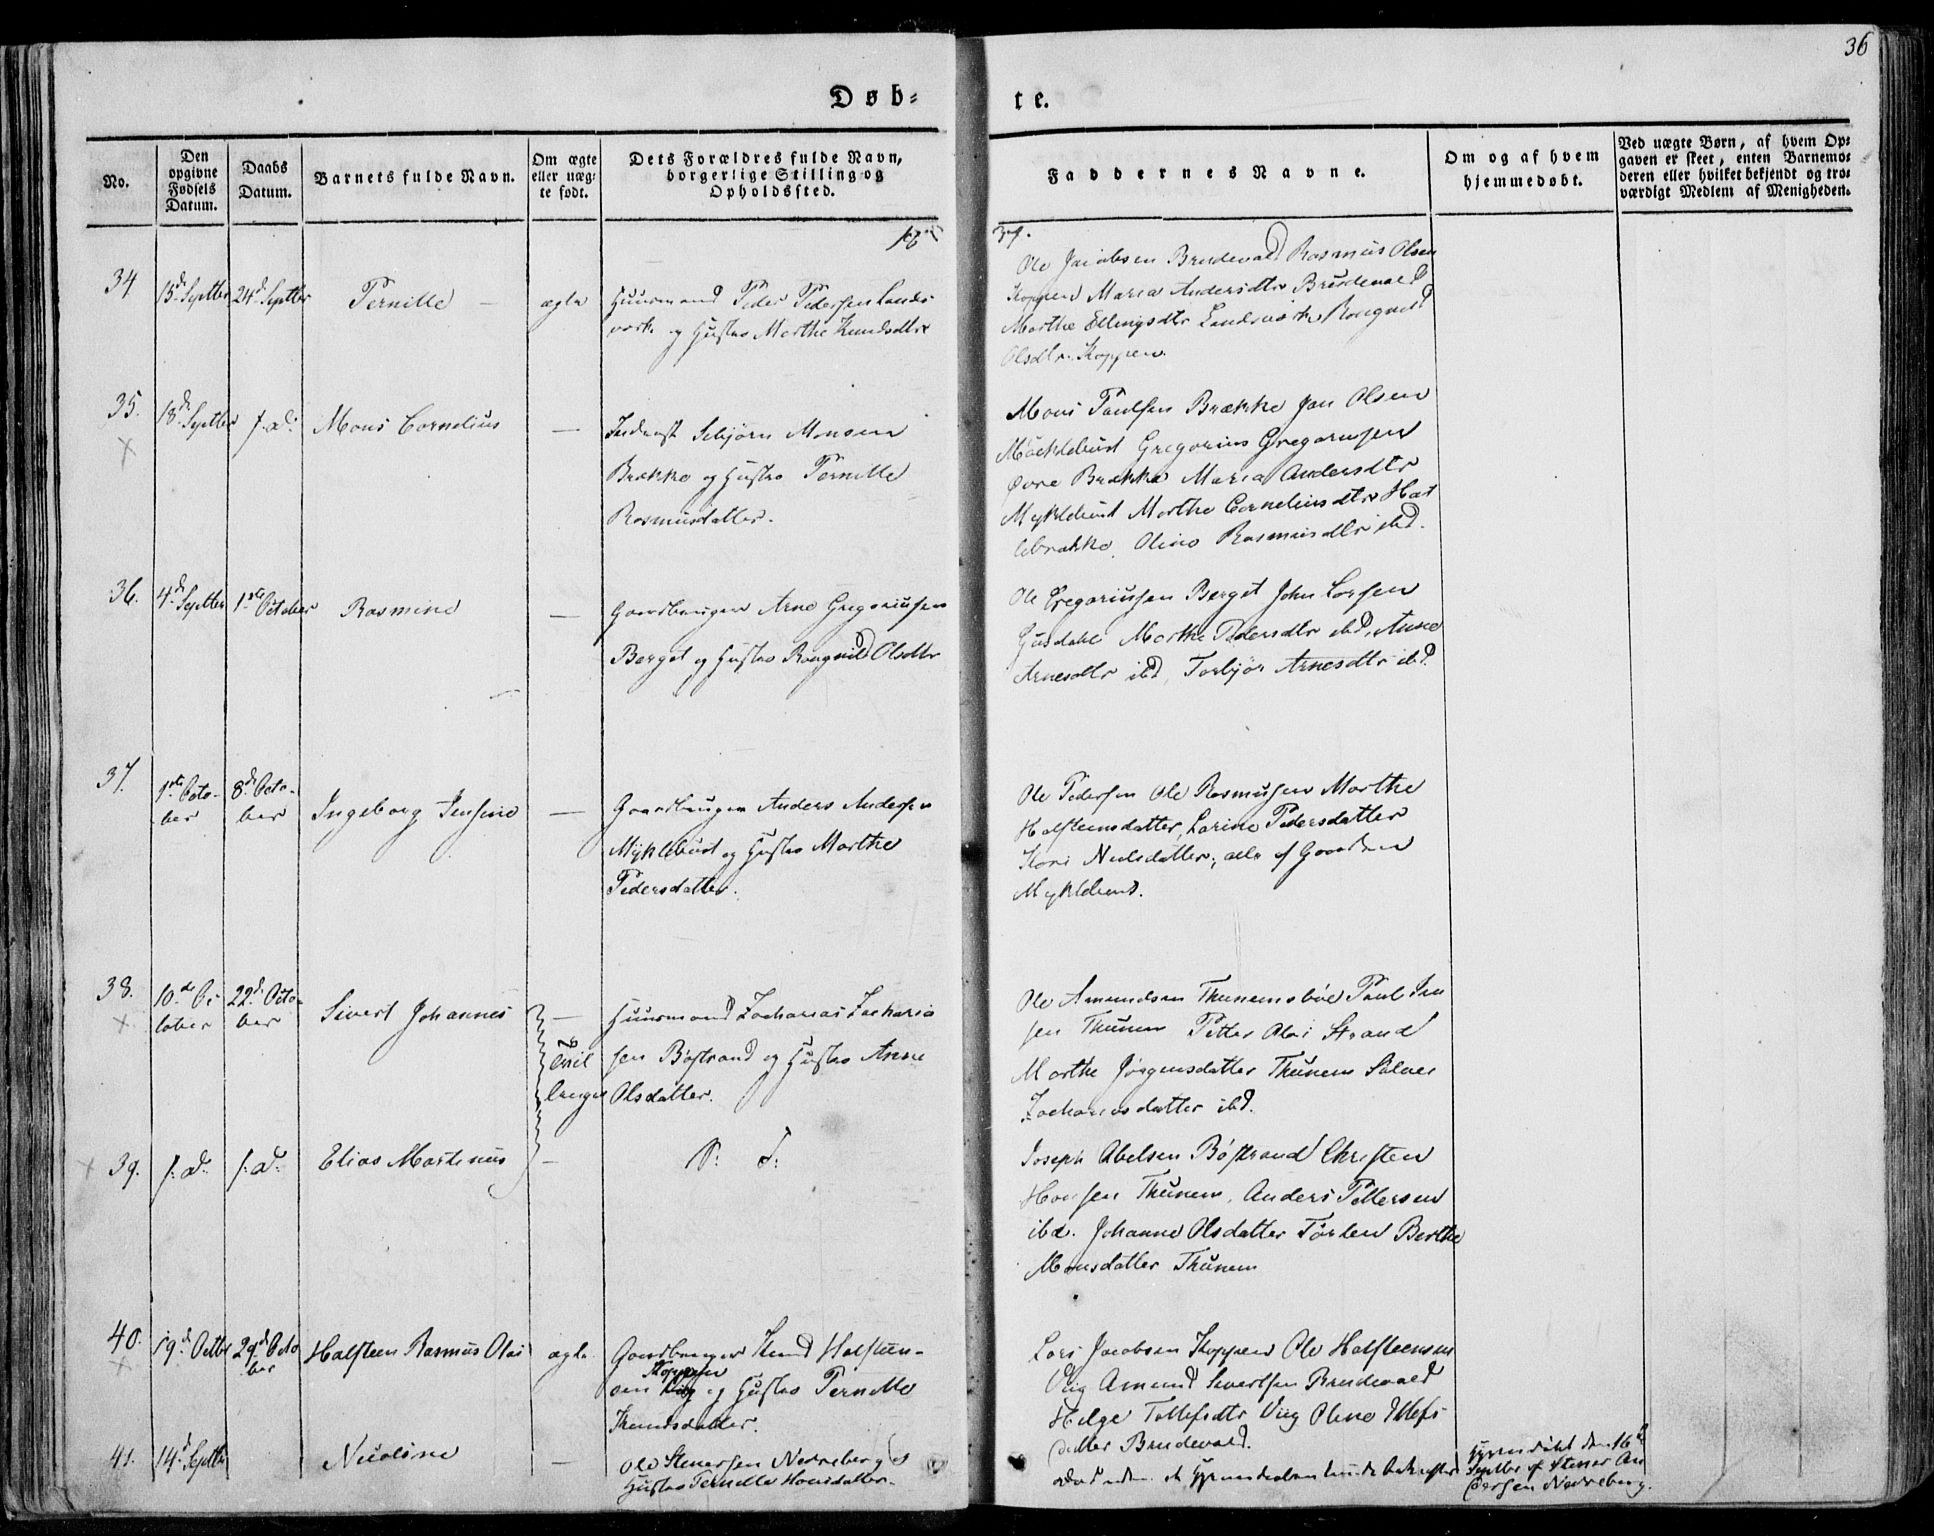 36
Døb=
te.
No.
Den opgivne Fødsels Datum.
Daabs Datum.
Barnets fulde Navn.
Om ægte eller uæg= te født.
Dets Forældres fulde Navn, borgerlige Stilling og Opholdssted.
Faddernes Navne.
Om og af hvem hjemmedøbt.
Ved uægte Børn, af hvem Op= gaven er skeet, enten Barnemo= deren eller hvilket bekjendt og tro= værdigt Medlem af Menigheden.
18
37.
34
15d Septber
24d Septber
Pernille
ægte
Huusmand Peder Pedersen Lands-
værk og Hustro Marthe Knudsdtr
Ole Jacobsen Brudevold Rasmus Olsen
Koppen Maria Andersdtr Brudevold
Marthe Ellingsdtr Landsværk Rangnild
Olsdtr. Koppen.
35.
18de Septber
s. d.
Mons Cornelius
—
Inderst Sebjørn Monsen
Brække og Hustro Pernille
Rasmusdatter.
Mons Paulsen Brække Jan Olsen
Mÿcklebust Gregorius Gregoriusen
Øvre Brække Maria Andersdtr
Myklebust Marthe Corneliusdtr Hat
lebrække, Oline Rasmusdtr ibd.
36.
4d Septber
1ste October
Rasmine
—
Gaardbruger Arne Gregoriusen
Berget og Hustro Rangnild Olsdtr
Ole Gregoriusen Berget John Larsen
Gjusdahl Marthe Pedersdtr ibd, Anne
Arnesdtr ibd, Torbjør Arnesdtr ibd.
37.
1ste Octo-
ber
8de Octo-
ber
Ingeborg Jensine
—
Gaardbruger Anders Andersen
Mÿklebust og Hustro Marthe
Pedersdatter.
Ole Pedersen Ole Rasmusen Marthe
Halsteensdatter, Larine Pedersdatter
Kari Neelsdatter; alle af Gaarden
Myklebust.
38.
10de Oc-
tober
22d Octo-
ber
Sivert Johannes
—
Tvil
linger
Huusmand Zacharias Zacharia
sen Bøstrand og Hustro Anne
Olsdatter.
Ole Amundsen Thunemsbøe Paul Jen
sen Thunem Petter Olai Strand
Marthe Jørgensdatter Thunem Salver
Zachariasdatter ibd.
39.
s. d.
s. d.
Elias Martinus
—
S: T:
Joseph Abelsen Bøstrand Christen
Hansen Thunem, Anders Pettersen
ibd. Johanne Olsdatter Tørlen Berthe
Monsdatter Thunem
40.
19d Octbr
29d Octo
ber
Halsteen Rasmus Olai
ægte
Gaardbruger Knud Halsteen-
sen Viig Koppen og Hustro Pernille
Knudsdatter.
Lars Jacobsen Koppen Ole Halsteensen
Viig Amund Sivertsen Brudevold
Helge Tollefsdtr Viig Oline Ellefs
datter Brudevold.
41.
14d Septbr
Nicoline
—
Ole Steenersen Nedreberg og
Hustro Pernille Hansdatter.
død uden at Hjemmedaaben kunde bekræftes
Hjemmedøbt den 16d
Septbr af Steener An
dersen Nedreberg.